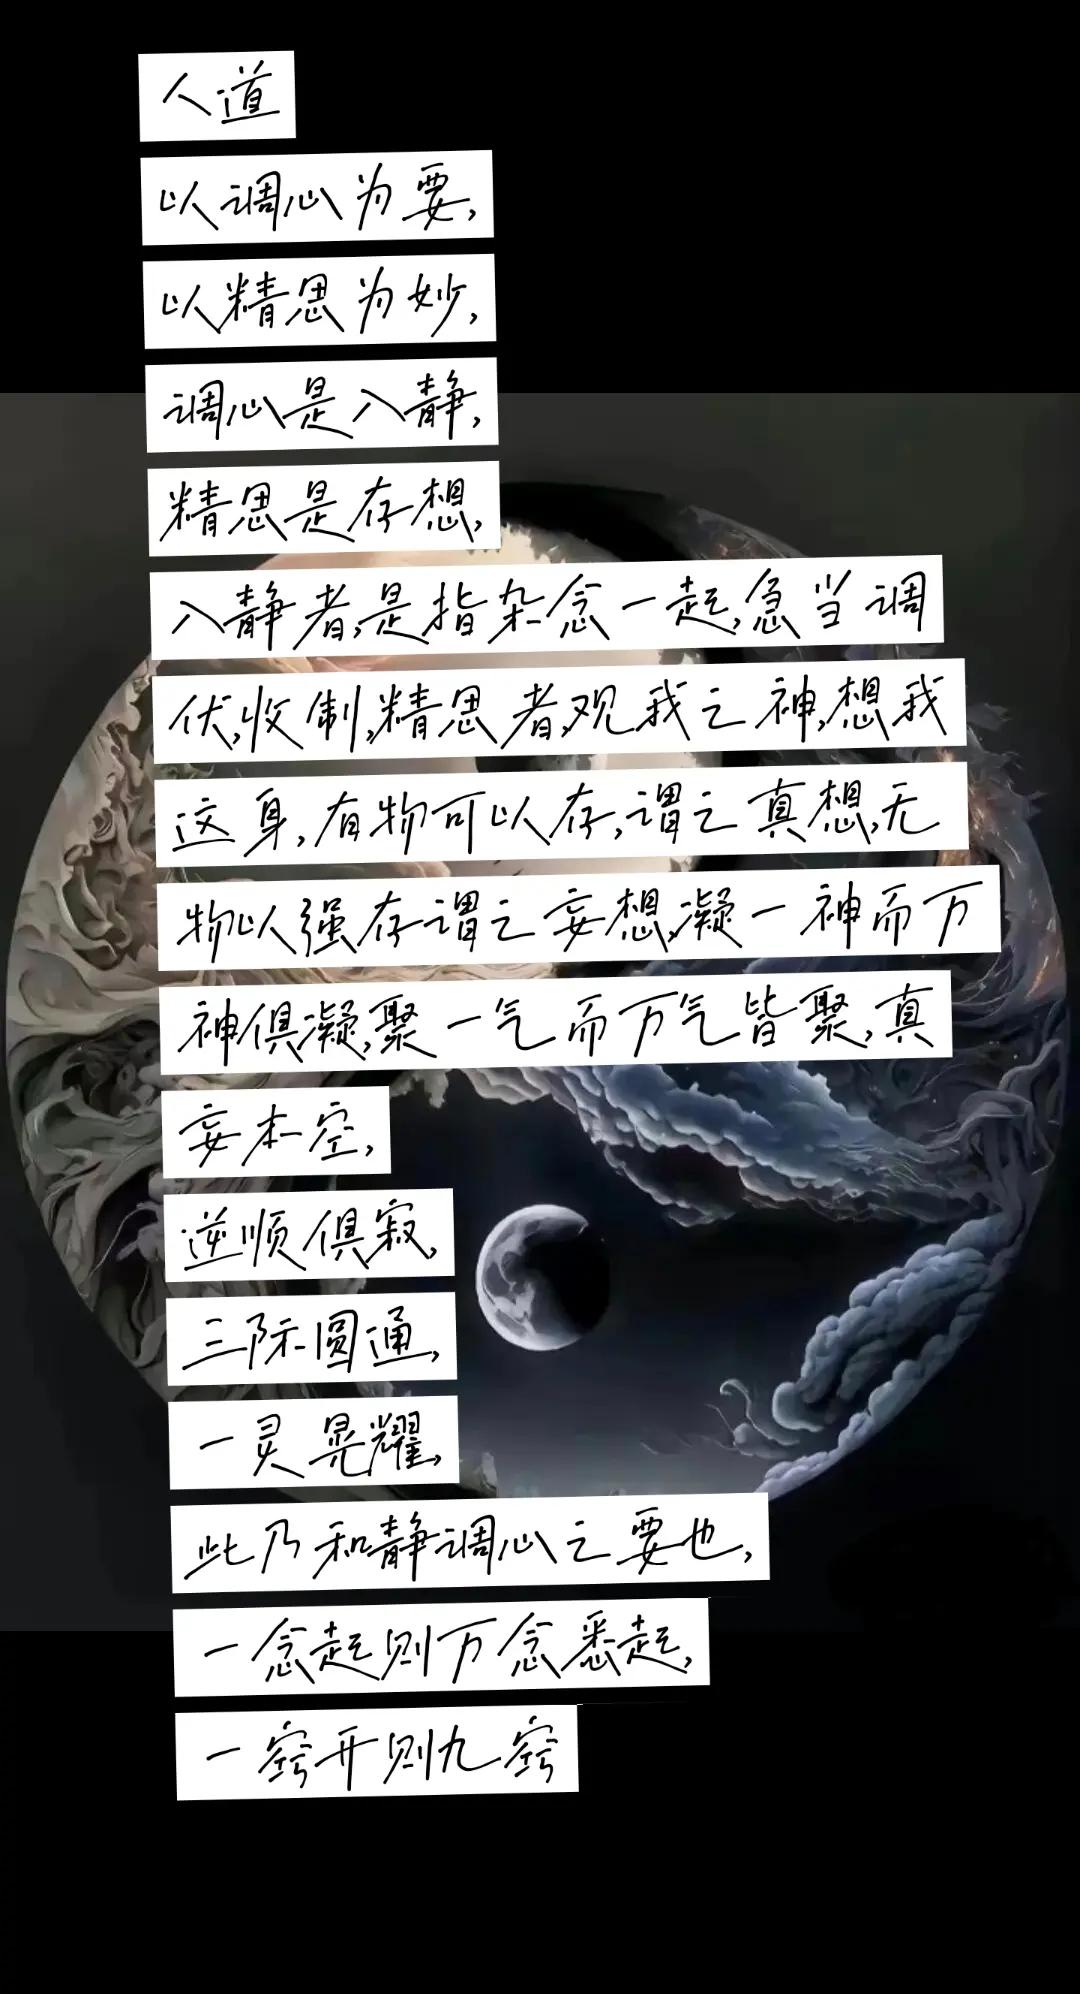 人道
以调心为要,
以精思为妙,
调心是入静,
精思是存想,
入静者,是指杂念一起,急当调
伏,收制,精思者,观我之神,想我
这身,有物可以存,谓之真想,无
物以强存谓之妄想,凝一神而万
神俱凝,聚一气而万气皆聚,真
妄本空,
逆顺俱寂,
三际圆通,
一灵晃耀,
此乃和静调心之要也,
一念起则万念悉起,
一窍开则九窍